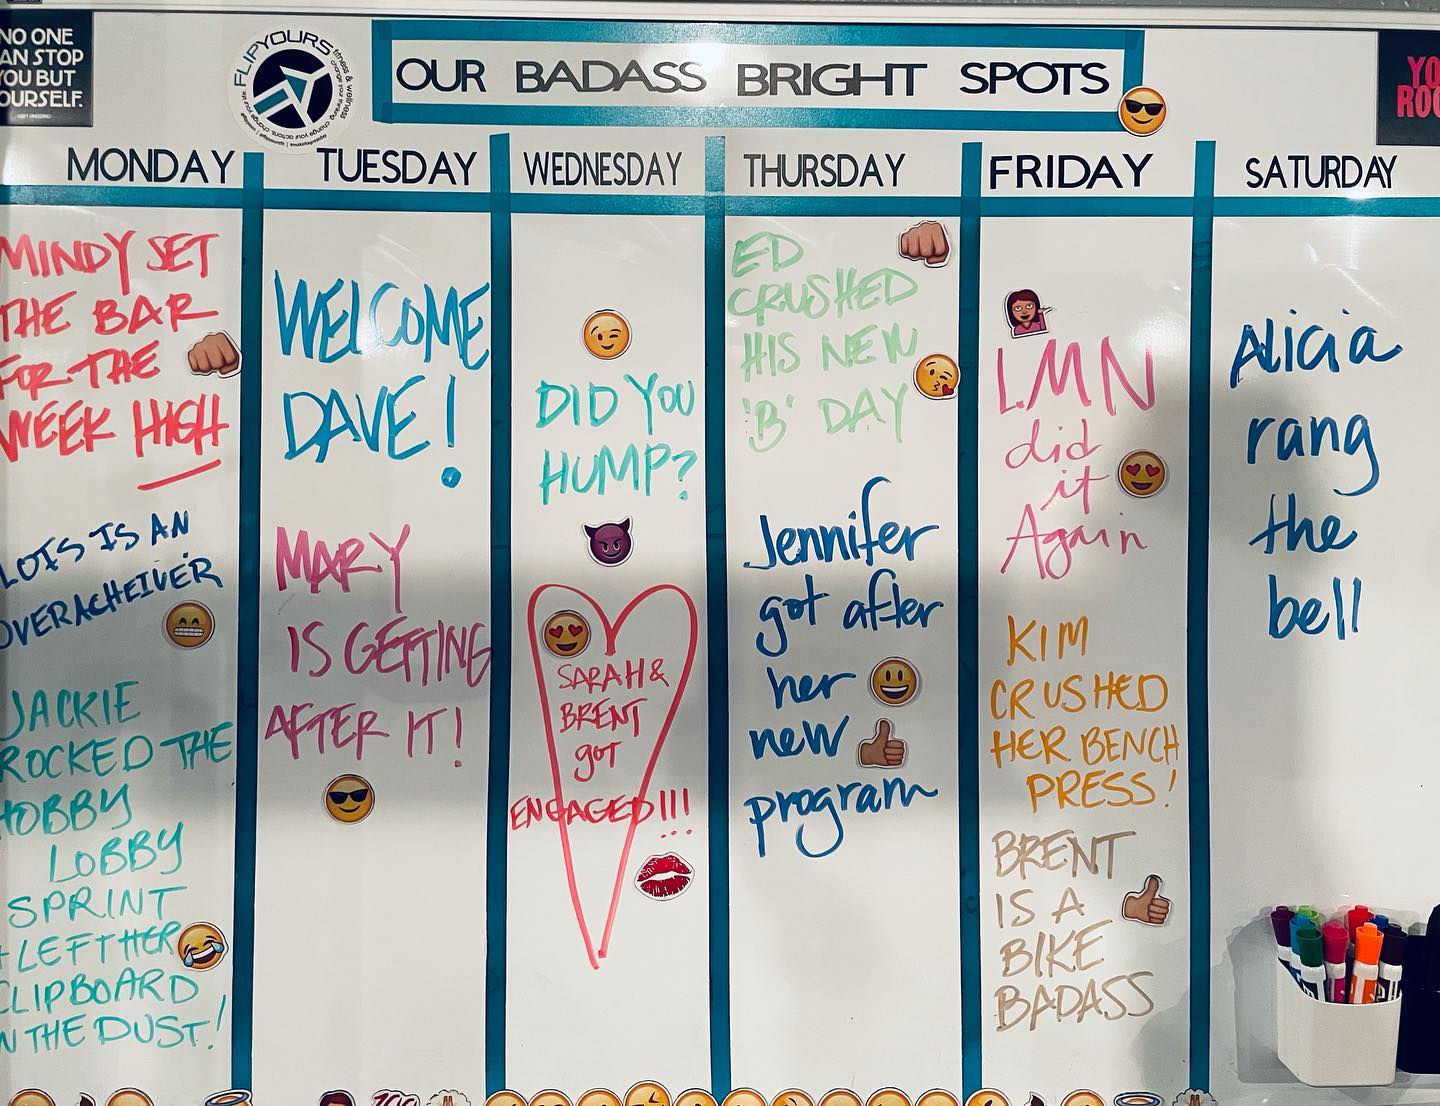 NO ONE
AN STOP
YOU BUT
OURSELF.
FLIPYOURS
fitness & wellness
OUR BADASS BRIGHT SPOTS
YO
ROC
MONDAY
TUESDAY
WEDNESDAY
THURSDAY
FRIDAY
SATURDAY
MINDY SET
THE BAR
FOR THE
WEEK HIGH
LOIS IS AN
OVERACHEIVER
JACKIE
ROCKED THE
HOBBY
LOBBY
SPRINT
+ LEFT HER
CLIPBOARD
IN THE DUST!
WELCOME
DAVE!
MARY
IS GETTING
AFTER IT!
DID YOU
HUMP?
SARAH &
BRENT
got
ENGAGED!!!
ED
CRUSHED
HIS NEW
'B' DAY
Jennifer
got after
her
new
program
LMN
did
it
Again
KIM
CRUSHED
HER BENCH
PRESS!
BRENT
IS A
BIKE
BADASS
Alicia
rang
the
bell
100